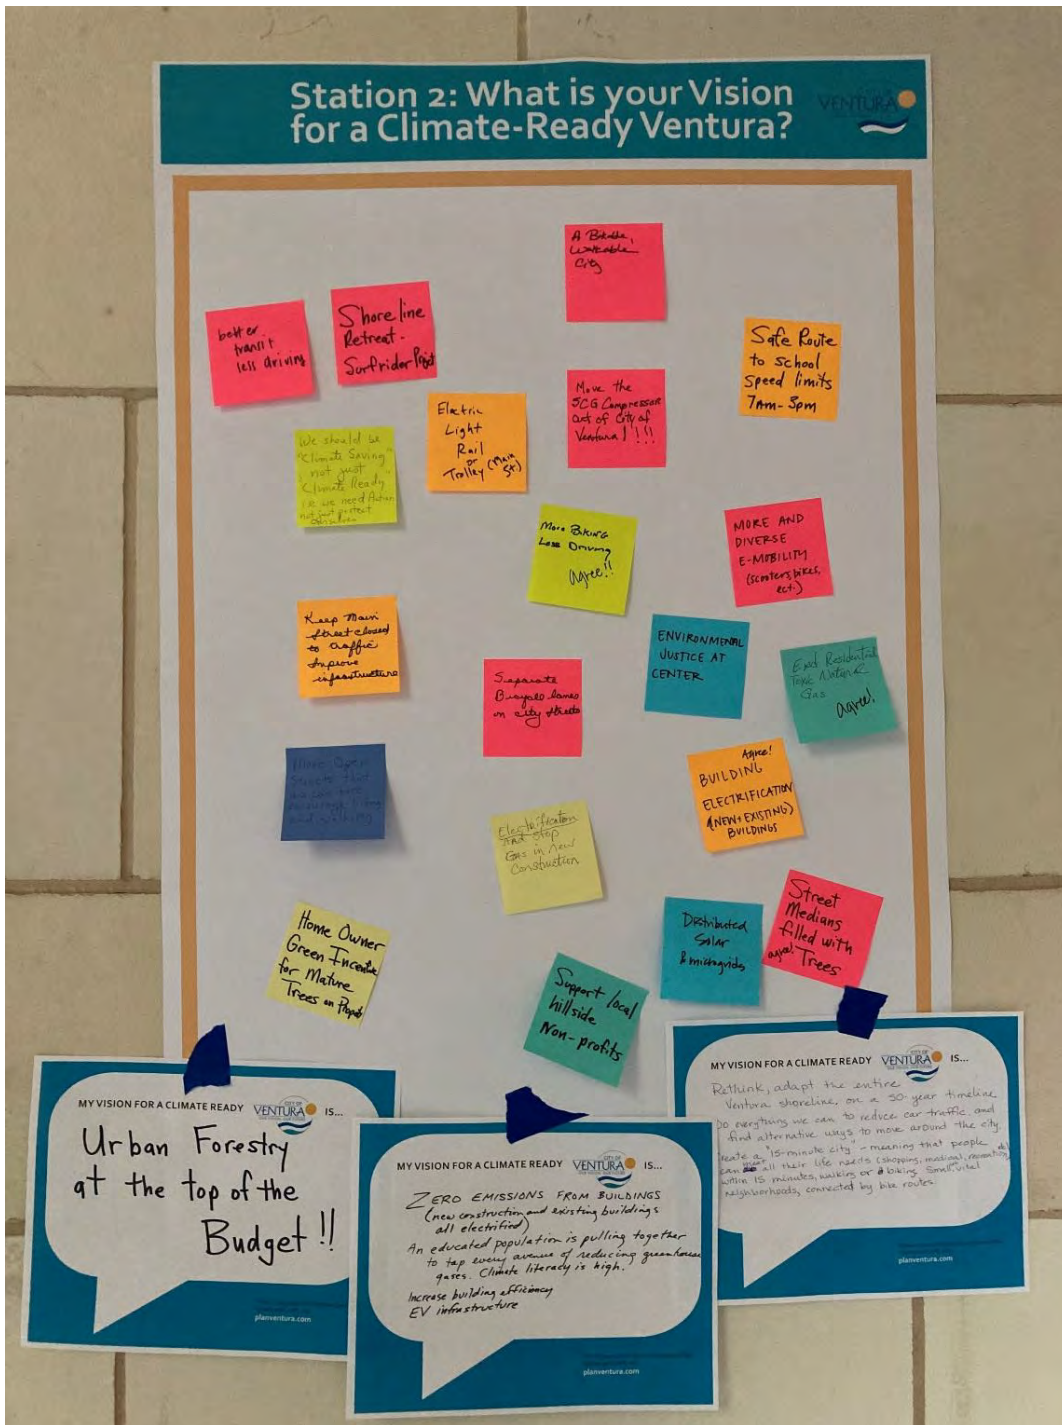 Station 2: What is your Vision
for a Climate-Ready Ventura?
CITY OF
VENTURA
A Bikable,
Walkable
City
better
transit
less driving
Shoreline
Retreat.
Surfrider Project
Safe Route
to school
Speed limits
7AM-3pm
Electric
Light
Rail
or
Trolley (Main St.)
Move the
SCG Compressor
out of City of
Ventura!!!!
We should be
"Climate Saving"
not just
"Climate Ready
i.e. we need Action
not just protect
ourselves
More Biking
Less Driving
agree!!
MORE AND
DIVERSE
E-MOBILITY
(scooters, bikes,
ect.)
Keep Main
Street closed
to traffic
Improve
infrastructure
Separate
Bicycle lanes
on city streets
ENVIRONMENTAL
JUSTICE AT
CENTER
End Residential
Toxic Natural
Gas
agree!
More Open
Streets that
encourage biking
and walking
Electrification
And Stop
Gas in new
Construction
Agree!
BUILDING
ELECTRIFICATION
(NEW + EXISTING)
BUILDINGS
Home Owner
Green Incentive
for Mature
Trees on Property
Support local
hillside
Non-profits
Distributed
Solar
& microgrids
Street
Medians
filled with
agree! Trees
MY VISION FOR A CLIMATE READY CITY OF VENTURA IS...
Urban Forestry
at the top of the
Budget!!
planventura.com
MY VISION FOR A CLIMATE READY CITY OF VENTURA IS...
ZERO EMISSIONS FROM BUILDINGS
(new construction and existing buildings
all electrified)
An educated population is pulling together
to tap every avenue of reducing greenhouse
gases. Climate literacy is high.
Increase building efficiency
EV infrastructure
planventura.com
MY VISION FOR A CLIMATE READY CITY OF VENTURA IS...
Rethink, adapt the entire
Ventura shoreline, on a 50-year timeline
Do everything we can to reduce car traffic and
find alternative ways to move around the city.
Create a "15-minute city" - meaning that people
can meet all their life needs (shopping, medical, recreation, etc)
within 15 minutes, walking or biking. Small, vital
neighborhoods, connected by bike routes.
planventura.com